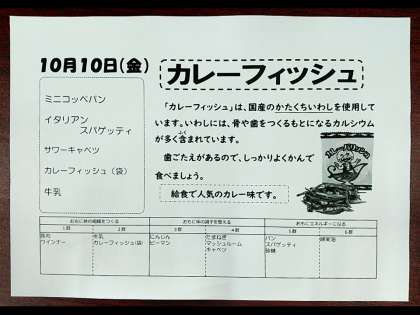 10月10日(金)
カレーフィッシュ
ミニコッペパン
イタリアン
スパゲッティ
サワーキャベツ
カレーフィッシュ(袋)
牛乳
「カレーフィッシュ」は、国産のかたくちいわしを使用して
います。いわしには、骨や歯をつくるもとになるカルシウム
が多く含まれています。
歯ごたえがあるので、しっかりよくかんで
食べましょう。
給食で人気のカレー味です。
おもに体の組織をつくる おもに体の調子を整える おもにエネルギーになる
1群 2群 3群 4群 5群 6群
豚肉 牛乳 にんじん たまねぎ パン
ウインナー カレーフィッシュ(袋) ピーマン マッシュルーム スパゲッティ
キャベツ 砂糖